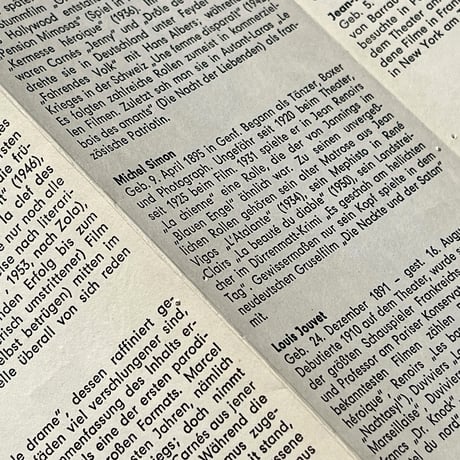 Hollywood entstanden"
Pension Mimosa" (Spiel in
Kermesse héroïque" (1935),
waren Carnés „Jenny" und
drehte sie in Deutschland unter
Fahrendes Volk mit Hans Albers; während
Krieges in der Schweiz „Une femme disparaît" (1942).
Es folgten zahlreiche Rollen zumeist in kommerziel-
len Filmen. Zuletzt sah man sie in Autant-Laras „Le
bois des amants" (Die Nacht der Liebenden) als fran-
zösische Patriotin.
Michel Simon
Geb. 9. April 1895 in Genf. Begann als Tänzer, Boxer
und Photograph. Ungefähr seit 1920 beim Theater,
seit 1925 beim Film. 1931 spielte er in Jean Renoirs
„La chienne" eine Rolle, die der von Jannings im
„Blauen Engel" ähnlich war. Zu seinen unvergeß-
lichen Rollen gehören sein alter Matrose aus Jean
Vigos „L'Atalante" (1934), sein Mephisto in René
Clairs „La beauté du diable" (1950), sein Landstrei-
cher im Dürrenmatt-Krimi „Es geschah am hellichten
Tag". Gewissermaßen nur sein Kopf spielte in dem
neudeutschen Gruselfilm „Die Nackte und der Satan"
mit.
Louis Jouvet
Geb. 24. Dezember 1891 – gest. 16. Augu
Debutierte 1910 auf dem Theater, wurde
der größten Schauspieler Frankreichs
und Professor am Pariser Konserva
bekanntesten Filmen zählen
héroïque", Renoirs „Les ba
Nachtasyl"), Duviviers „
Marseillaise" Duviv
Dr. Knock"
Jean
Geb. 5.
von Barra
dem Theater an
besuchte in P
dene Filme in Fra
in New York am
die frü-
(1946),
la clef des
sie nur noch alle
eise nach literari-
1953 nach Zola),
nden Erfolg bis zum
risch umstrittener) Film
elbst betrügen) mitten im
le überall von sich reden
le drame", dessen raffiniert ge-
fäden viel verschlungener sind,
mmenfassung des Inhalts er-
eine der ersten paradi-
oßen Formats. Marcel
sten Jahren, nämlich
iegs; doch nimmt
Carnés aus jener
Während die
mus zuge-
stand, es